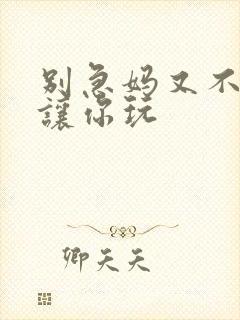 别急妈又不
讓你玩
卿天天